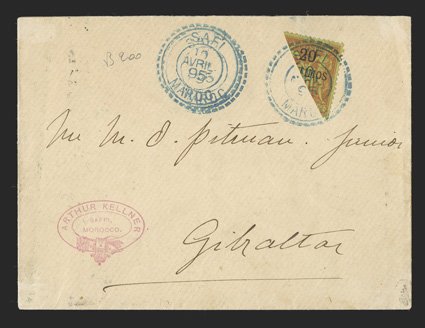 B 200
SAFI
10
AVRIL
95
MAROC
20
MAROC
Mr M. S. Pitman. Junior
ARTHUR KELLNER
SAFFI,
MOROCCO.
Gibraltar